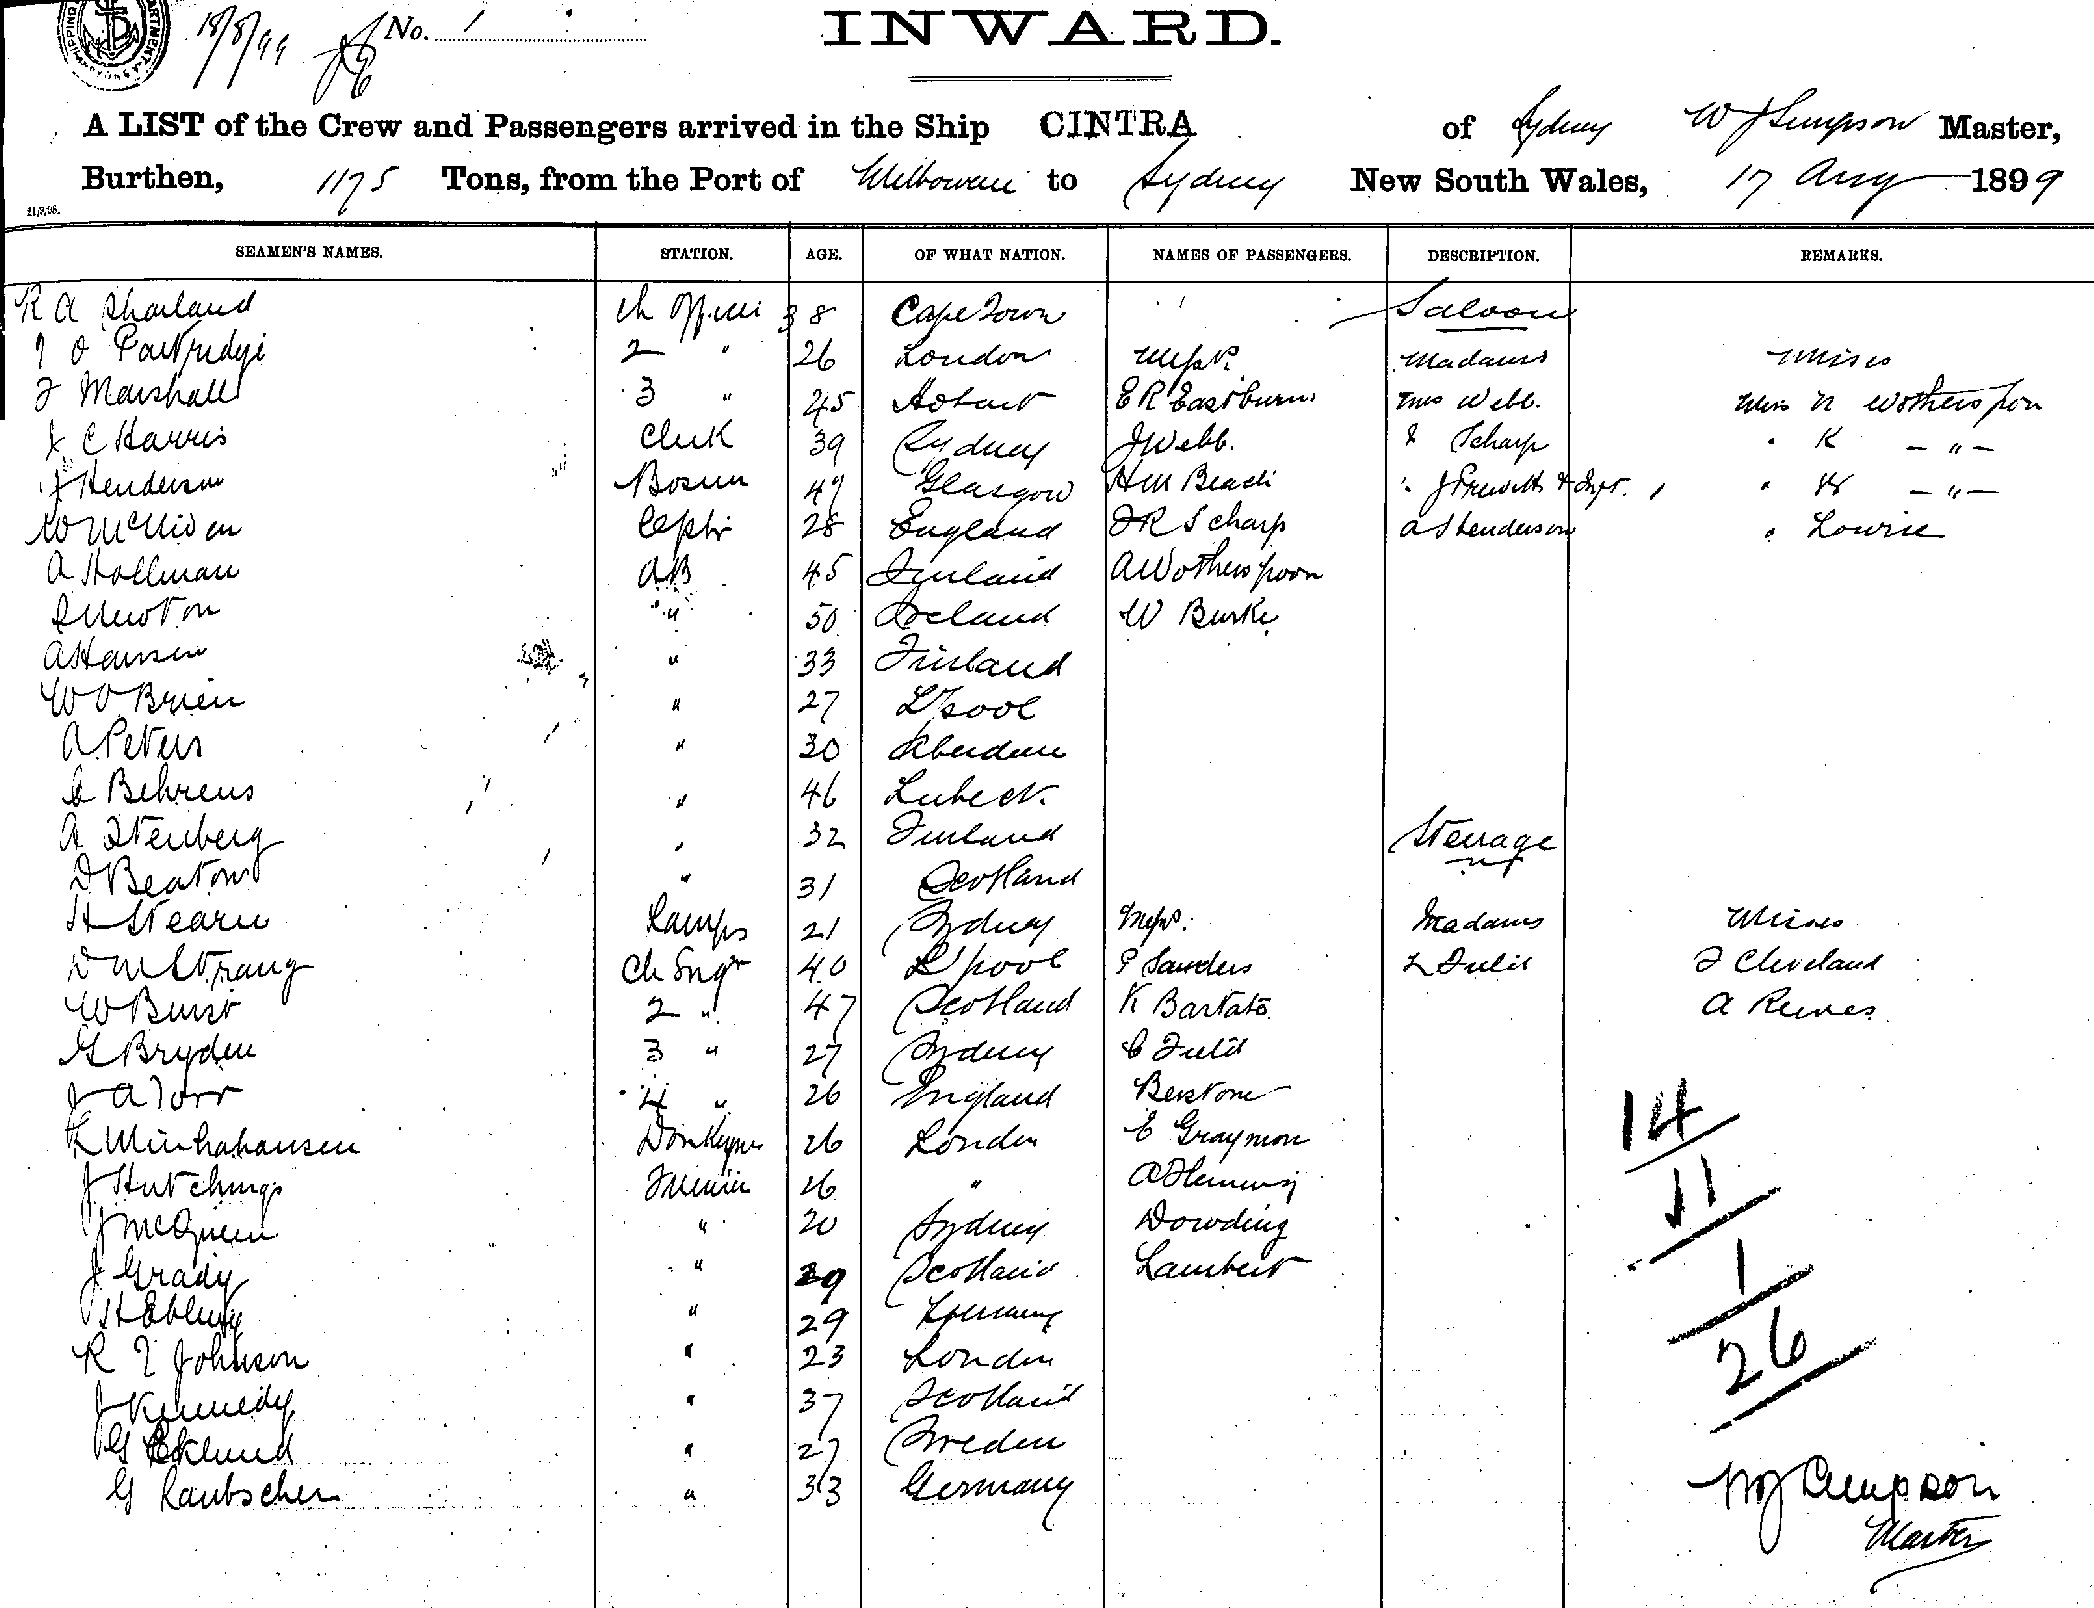 18/8/99 No. 1
INWARD.
A LIST of the Crew and Passengers arrived in the Ship CINTRA of Sydney W J Simpson Master,
Burthen, 1175 Tons, from the Port of Melbourne to Sydney New South Wales, 17 Aug 1899
SEAMEN'S NAMES. STATION. AGE. OF WHAT NATION. NAMES OF PASSENGERS. DESCRIPTION. REMARKS.
R A Sharland Ch Officer 38 Cape Town Saloon
J O Partridge 2 " 26 London Messrs. Madams Misses
F Marshall 3 " 45 Hobart E R Eastburn Mrs Webb. Miss N Wotherspoon
J C Harris Clerk 39 Sydney J Webb. " Scharp " K — " —
J Henderson Bosun 49 Glasgow H M Beach " J Prewett & Inft. " H — " —
28 England F R Scharp A S Henderson " Lowrie
A Hollman AB 45 Finland A Wotherspoon
Newton " 50 Iceland W Burke
A Hansen " 33 Finland
W O Brien " 27 L'pool
A Peters " 30 Aberdeen
C Behrens " 46 Lubeck.
A Stenberg " 32 Finland Steerage
D Beaton " 31 Scotland
H Stearn Lamps 21 Sydney Messrs. Madams Misses
D M Strang Ch Engr 40 L'pool P Sanders L Field F Cleveland
W Burst 2 " 47 Scotland K Bartato A Reeves
G Bryden 3 " 27 Sydney C Field
J A Torr 4 " 26 England Berstone
Donkeyman 26 London E Graymore
J Hutchings Fireman 26 " A Fleming
J McQueen " 20 Sydney Dowding
J Grady " 29 Scotland Lambert
H Ebling " 29 Germany
R T Johnson " 23 London
J Kennedy " 37 Scotland
G Eklund " 27 Sweden
G Raubscher " 33 Germany
14
11
1
26
W J Simpson
Master